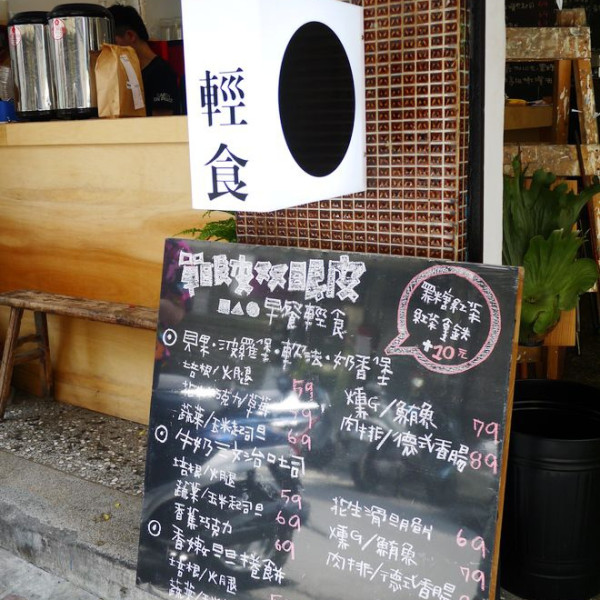 輕食
單眼双眼皮
早餐輕食
黑糖紅茶
紅茶拿鐵
+10元
貝果·波羅堡·軟法·奶香堡
培根/火腿 59
79
蔬菜/玉米起司旦 69
燻G/鮪魚 79
肉排/德式香腸 89
牛奶三文治吐司
培根/火腿 59
蔬菜/玉米起司旦 69
香蕉巧克力 69
花生滑旦 69
燻G/鮪魚 79
肉排/德式香腸
香嫩旦旦捲餅
培根/火腿
蔬菜